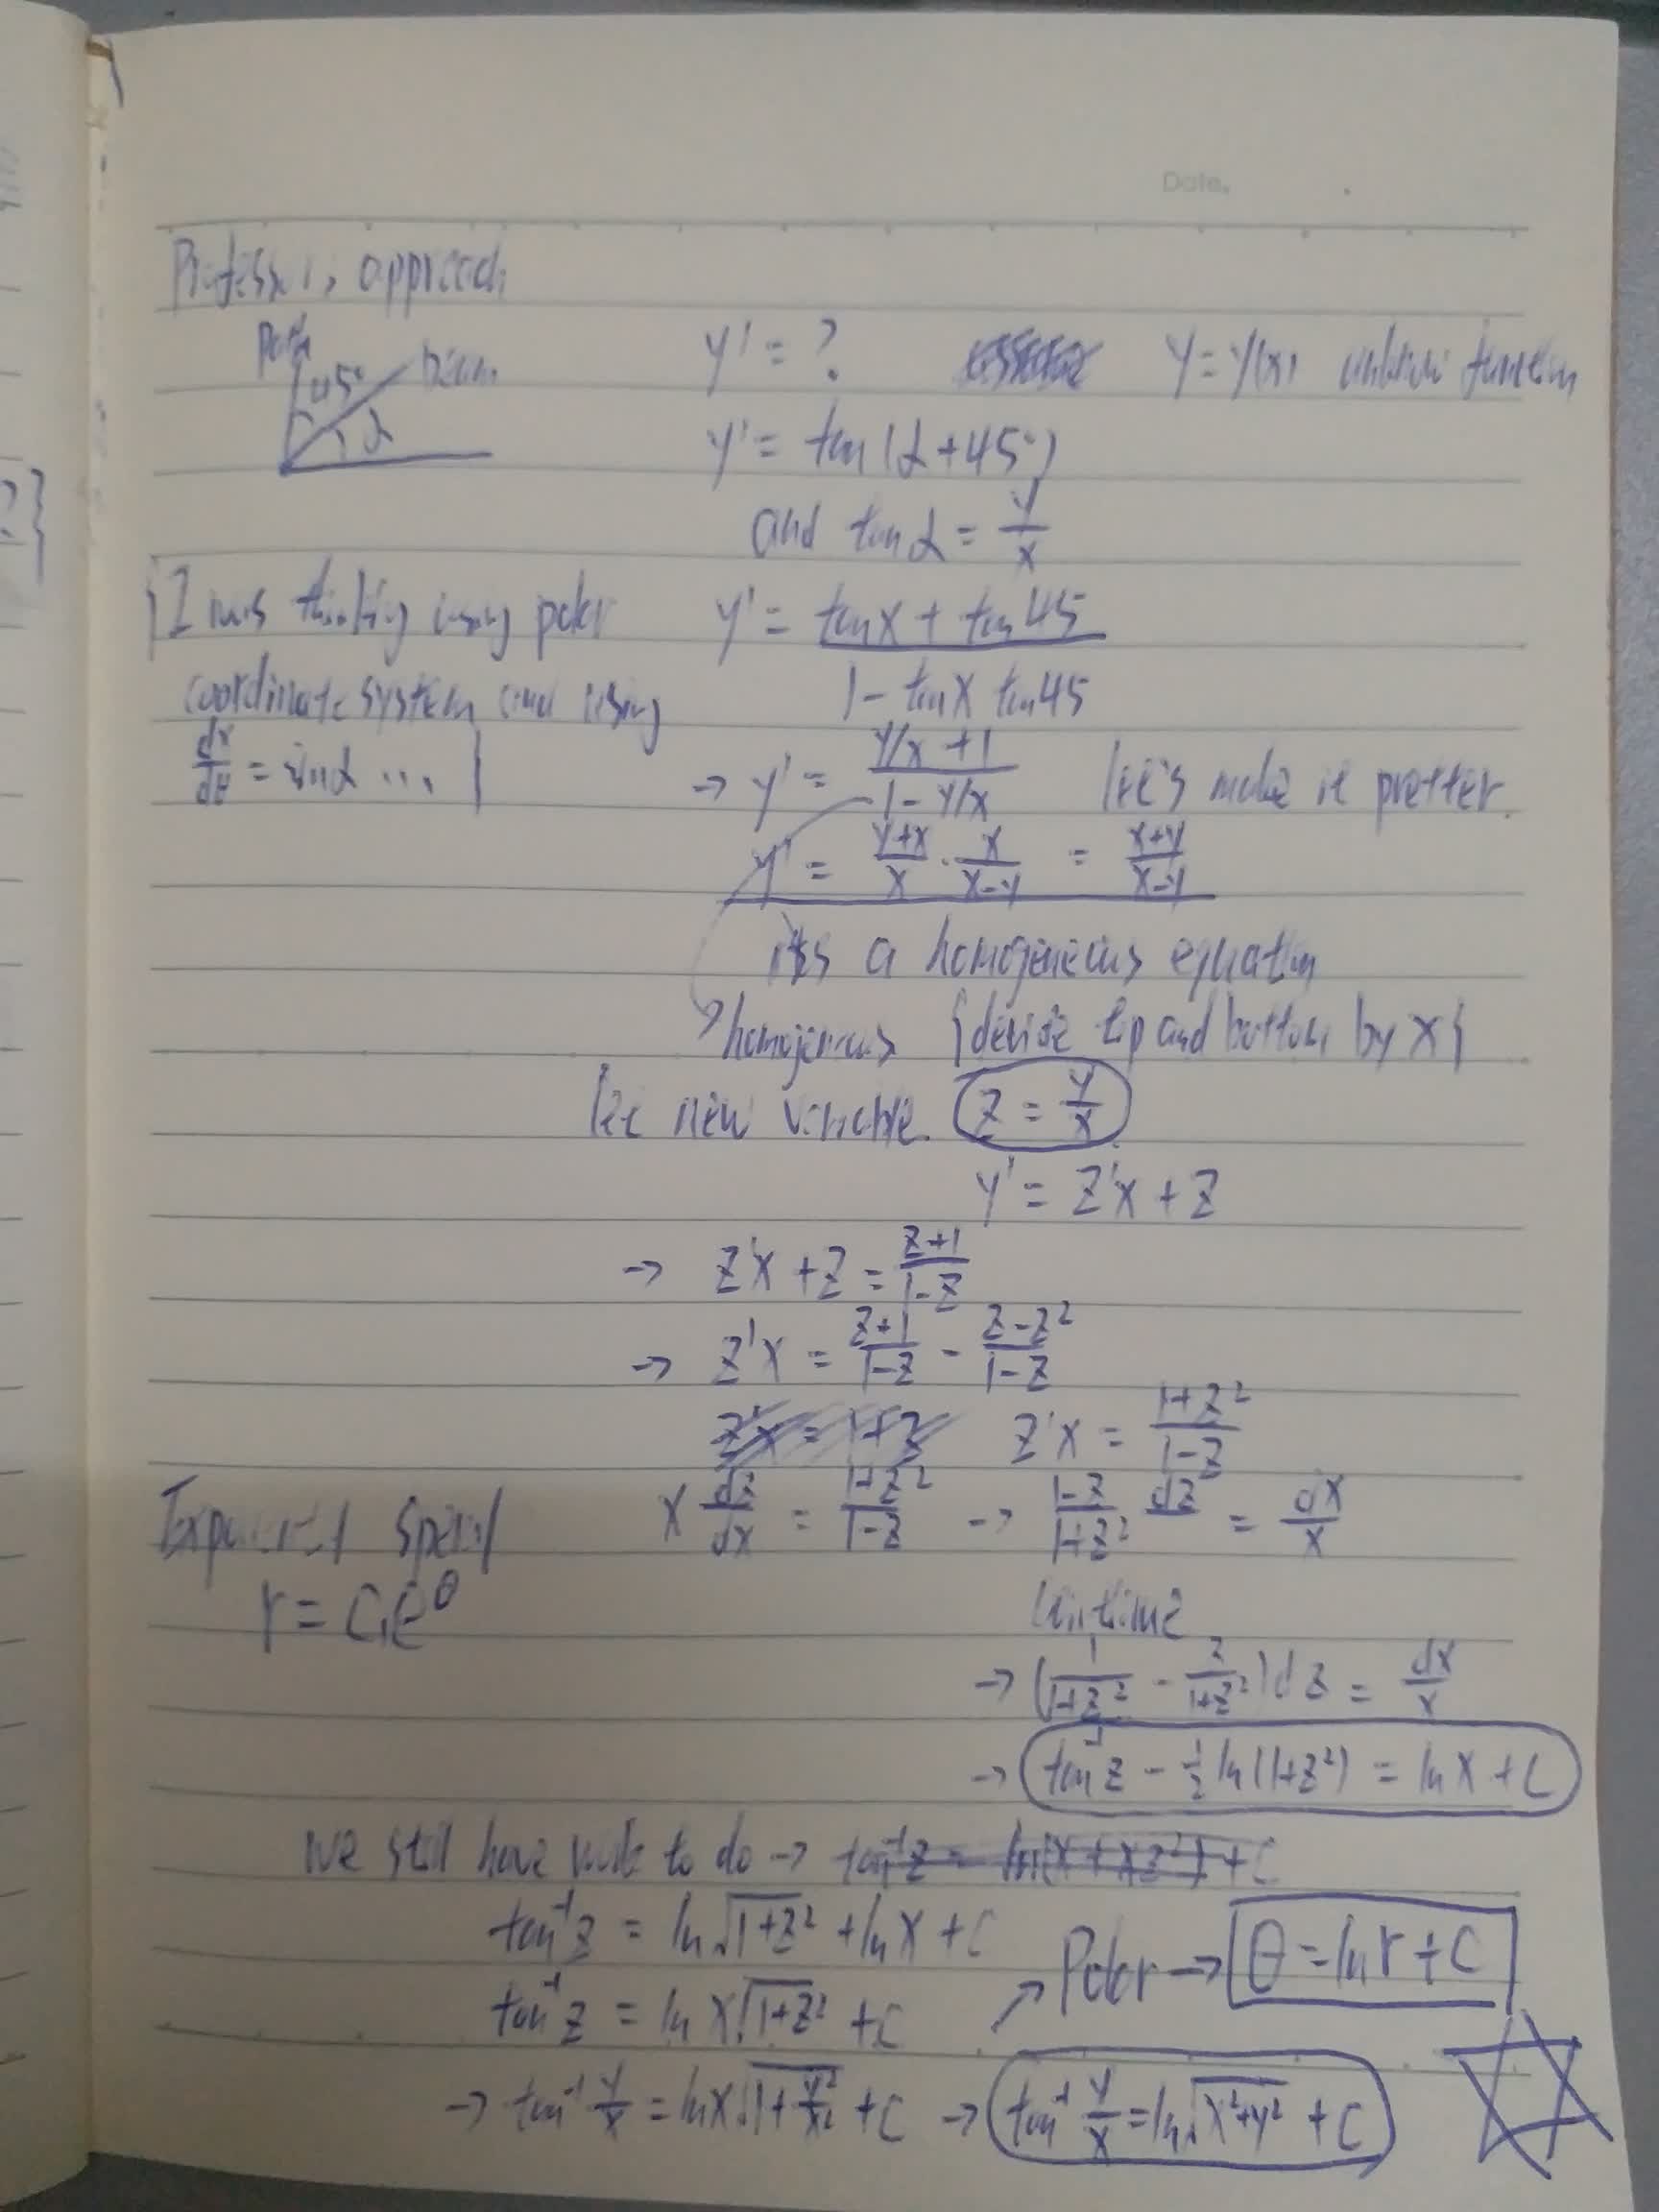 Date.
Professor's approach
Path 45° beam α
y' = ? y = y(x) unknown function
y' = tan(α+45°)
and tan α = y/x
{I was thinking using polar
coordinate system and using
dr/dθ = sin α ... }
y' = (tan x + tan 45)/(1 - tan x tan 45)
→ y' = (y/x + 1)/(1 - y/x) let's make it prettier.
y' = (y+x)/x · x/(x-y) = (x+y)/(x-y)
it's a homogeneous equation
homogenous {devide top and bottom by x}
let new variable. z = y/x
y' = z'x + z
→ z'x + z = (z+1)/(1-z)
→ z'x = (z+1)/(1-z) - (z-z²)/(1-z)
z'x = 1+z z'x = (1+z²)/(1-z)
x dz/dx = (1+z²)/(1-z) → (1-z)/(1+z²) dz = dx/x
Exponential spiral
r = C₁e^θ
→ (1/(1+z²) - z/(1+z²))dz = dx/x
→ tan⁻¹z - ½ ln(1+z²) = ln x + C
we still have work to do → tan⁻¹z = ln(x + xz²) + C
tan⁻¹z = ln√(1+z²) + ln x + C
Polar → θ = ln r + C
tan⁻¹z = ln x√(1+z²) + C
→ tan⁻¹ y/x = ln x√(1 + y²/x²) + C → tan⁻¹ y/x = ln√(x²+y²) + C